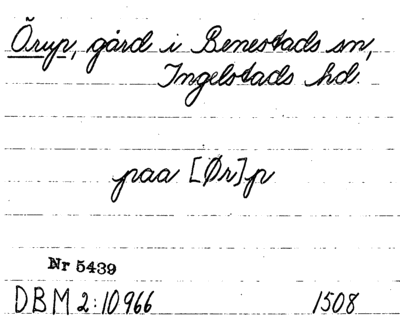 Örup, gård i Benestads sn,
Ingelstads hd.
paa [Ør]p
Nr 5439
DBM 2:10966 1508